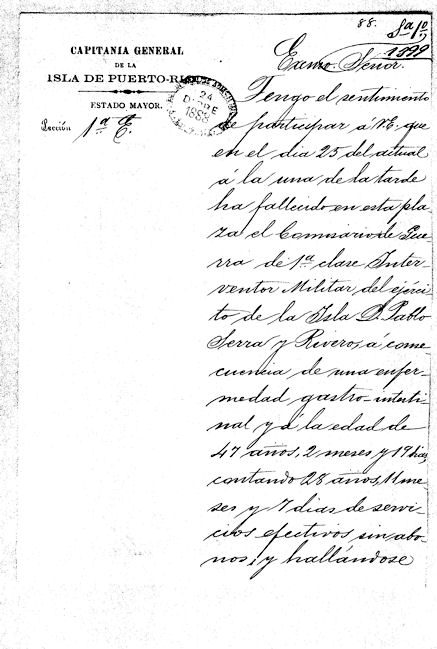 88.
1899
CAPITANIA GENERAL
DE LA
ISLA DE PUERTO-RICO
ESTADO MAYOR.
Sección 1ª E.
24
DBRE
1888
Excmo. Señor.
Tengo el sentimiento
de participar á V.E. que
en el dia 25 del actual
á la una de la tarde
ha fallecido en esta pla-
za el Comisario de Gue-
rra de 1ª clase Inter-
ventor Militar del ejérci-
to de la Isla D. Pablo
Serra y Rivero, á conse-
cuencia de una enfer-
medad gastro-intesti-
nal y á la edad de
47 años, 2 meses y 19 dias,
contando 28 años, 11 me-
ses y 7 dias de servi-
cios efectivos sin abo-
nos; y hallándose